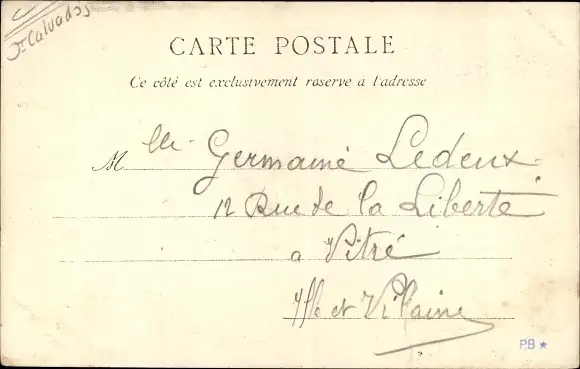 Calvados
CARTE POSTALE
Ce côté est exclusivement reserve a l'adresse
Mlle Germaine Ledeux
12 Rue de la Liberté
a Vitré
Ille et Vilaine
PB